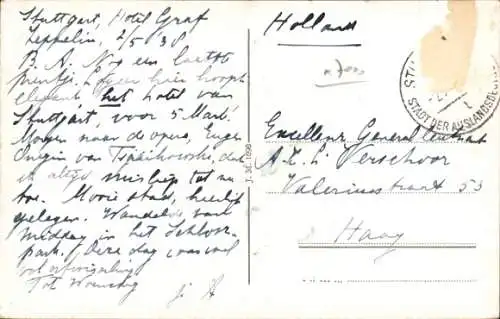 Stuttgart, Hotel Graf
Zeppelin, 2/5 '38
B. A. Nog een laatst
prentje. Logeer hier hoogst
elegant, het hotel van
Stuttgart, voor 5 Mark!
Morgen naar de opera, Eugen
Onegin van Tsjaikowski, dat
ik altijd misliep tot nu
toe. Mooie stad, heerlijk
gelegen. Wandelde van
middag in het Schloss-
park. Deze dag was wel
Tot Woensdag
Holland
STADT DER AUSLANDSDEUTSCHEN
Excellenz Generalleutnant
A. L. Verschoor
Valeriusstraat 53
Haag
J. 34. 1696